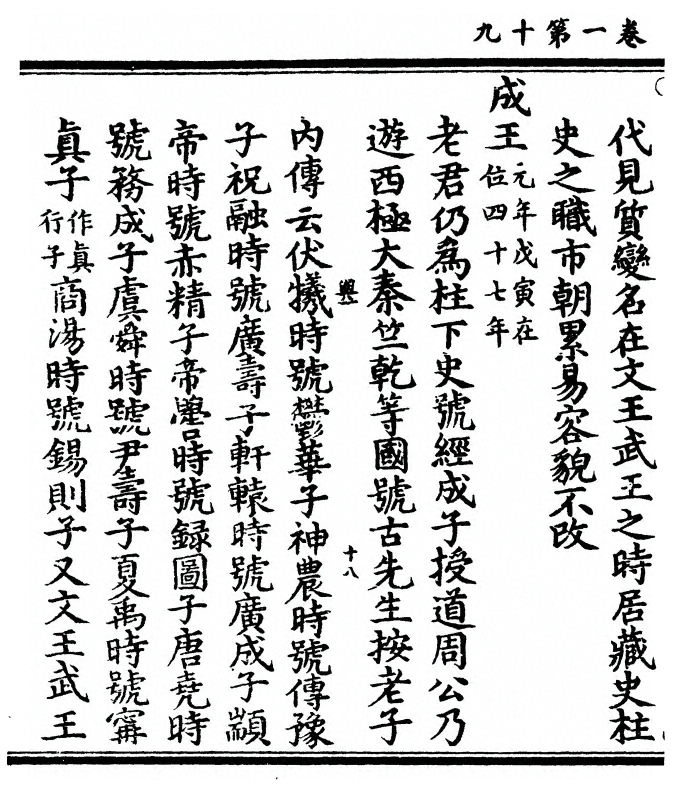 卷一第十九
代見質變名在文王武王之時居藏史柱
史之職市朝累易容貌不改
成王元年戊寅在位四十七年
老君仍爲柱下史號經成子授道周公乃
遊西極大秦竺乾等國號古先生按老子
興
十八
內傳云伏犧時號欝華子神農時號傳豫
子祝融時號廣壽子軒轅時號廣成子顓
帝時號赤精子帝嚳時號録圖子唐堯時
號務成子虞舜時號尹壽子夏禹時號寗
眞子作眞行子商湯時號錫則子又文王武王